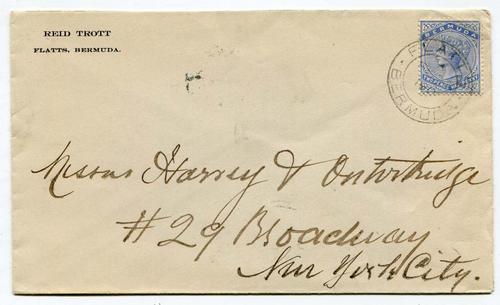 REID TROTT
FLATTS, BERMUDA.
BERMUDA
FLATTS
BERMUDA
Messrs Harvey & Outerbridge
#29 Broadway
New York City.